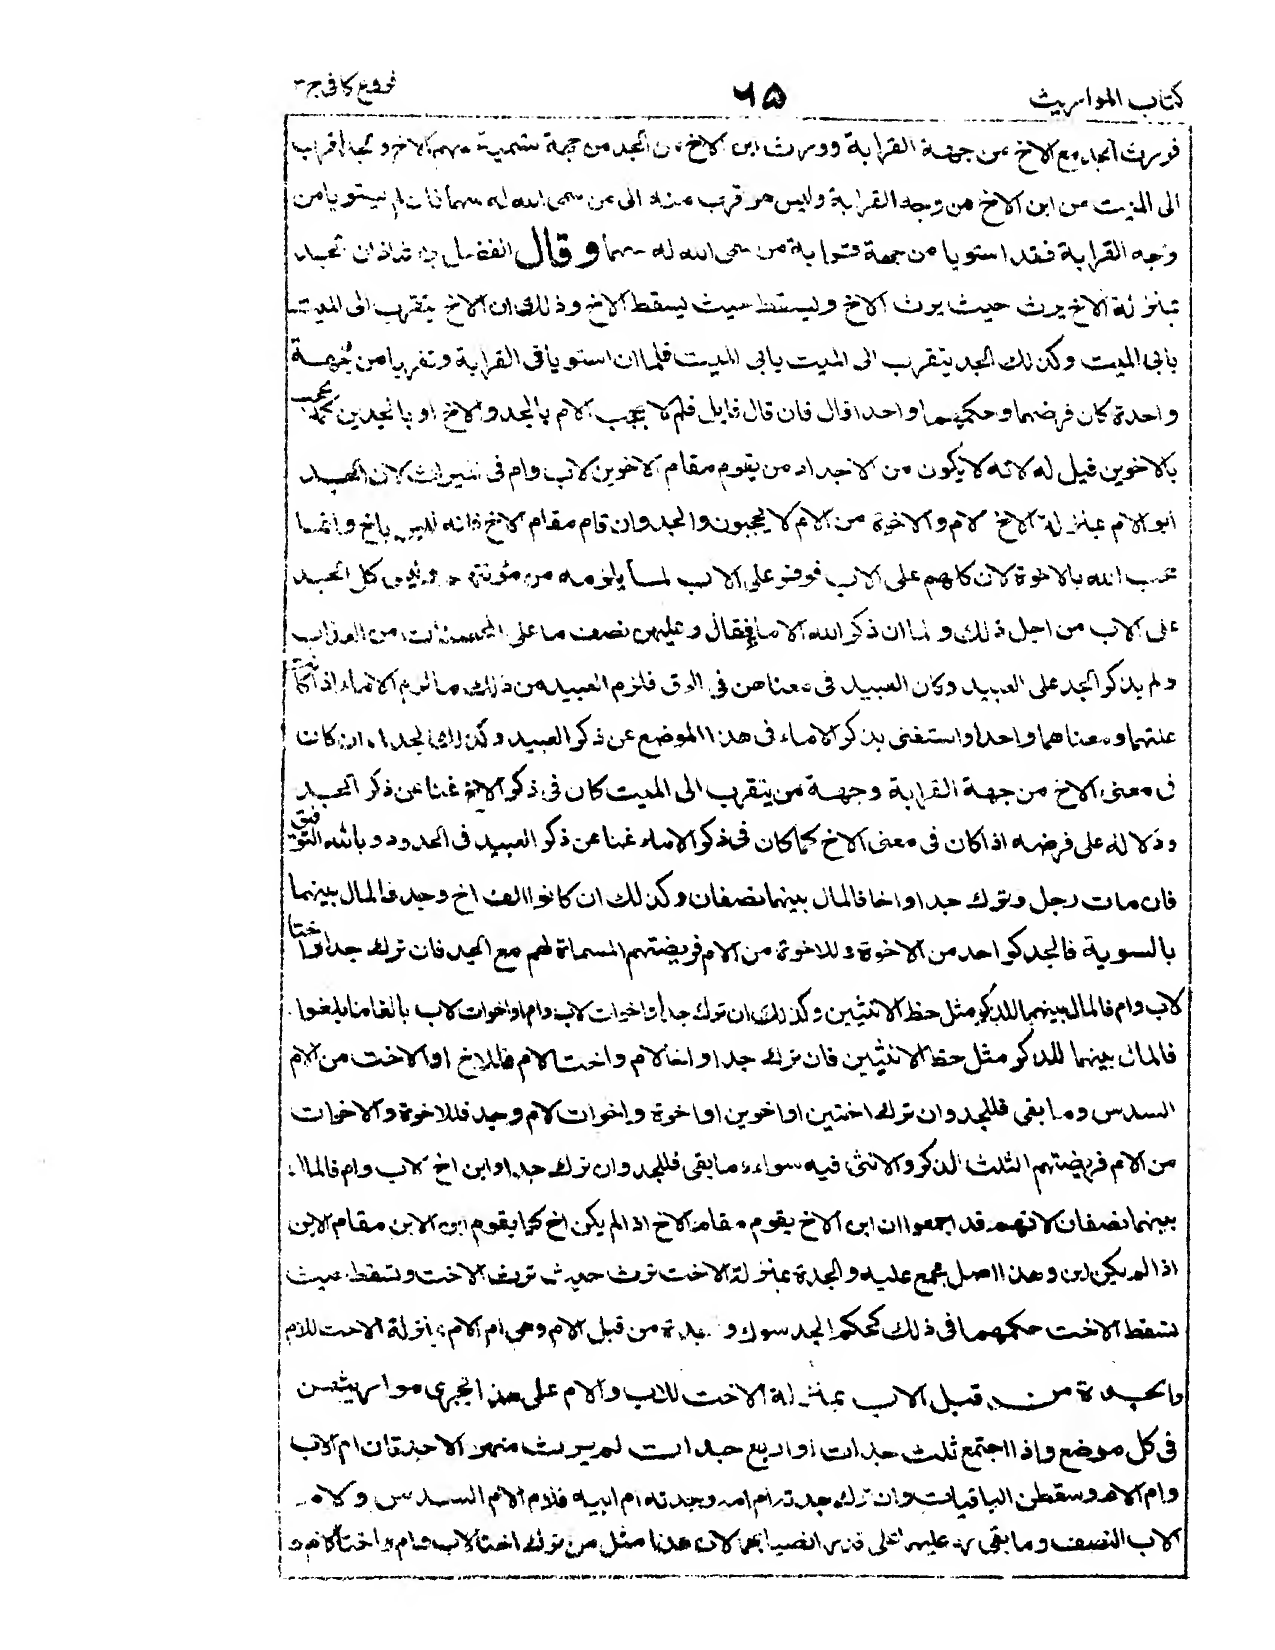 كتاب المواريث
٦٥
فروع كافى ج٣
فورث الجد مع الاخ من جهة القرابة وورث ابن الاخ من الجد من جهة تسمية سهم الاخ والجد اقرب
الى الميت من ابن الاخ من وجه القرابة وليس هو قرب منه الى من سمى الله له سهما فان لم يستويا من
وجه القرابة فقد استويا من جهة قرابة من سمى الله له سهما وقال الفضل بن شاذان الجد
بمنزلة الاخ يرث حيث يرث الاخ ويسقط حيث يسقط الاخ وذلك ان الاخ يتقرب الى الميت
بابى الميت وكذلك الجد يتقرب الى الميت بابى الميت فلما ان استويا فى القرابة وتقربا من جهة
واحدة كان فرضهما وحكمهما واحدا قال فان قال قايل فلم لا يحجب الام بالجد والاخ او بالجدين كما يحجب
بالاخوين قيل له لانه لا يكون من الاجداد من يقوم مقام الاخوين لاب وام فى الميراث لان الجد
ابو الام بمنزلة الاخ لام والاخوة من الام لا يحجبون والجد وان قام مقام الاخ فانه ليس باخ وانما
حجب الله بالاخوة لان كلهم على الاب فوفر على الاب لما يلزمه من مؤنتهم وليس كل الجد
على الاب من اجل ذلك ولما ان ذكر الله الاماء فقال وعليهن نصف ما على المحصنات من العذاب
ولم يذكر الحد على العبيد وكان العبيد فى معناهن فى الرق فلزم العبيد من ذلك ما لزم الاماء اذ كانت
علتهما ومعناهما واحدا واستغنى بذكر الاماء فى هذا الموضع عن ذكر العبيد وكذلك الجد لما ان كانت
فى معنى الاخ من جهة القرابة وجهة من يتقرب الى الميت كان فى ذكر الاخ غنا عن ذكر الجد
ودلالة على فرضه اذ كان فى معنى الاخ كما كان فى ذكر الاماء غنا عن ذكر العبيد فى الحدود وبالله التوفيق
فان مات رجل وترك جدا واخا فالمال بينهما نصفان وكذلك ان كانوا الف اخ وجد فالمال بينهما
بالسوية فالجد كواحد من الاخوة وللاخوة من الام فريضتهم المسماة لهم مع الجد فان ترك جدا واختا
لاب وام فالمال بينهما للذكر مثل حظ الانثيين وكذلك ان ترك جدا واخوات لاب وام او اخوات لاب بالغا ما بلغوا
فالمال بينهما للذكر مثل حظ الانثيين فان ترك جدا واخا لام واخت لام فللاخ او الاخت من الام
السدس وما بقى فللجد وان ترك اختين او اخوين او اخوة واخوات لام وجد فللاخوة والاخوات
من الام فريضتهم الثلث الذكر والانثى فيه سواء وما بقى فللجد وان ترك جدا وابن اخ لاب وام فالمال
بينهما نصفان لانهم قد اجمعوا ان ابن الاخ يقوم مقام الاخ اذا لم يكن اخ كما يقوم ابن الابن مقام الابن
اذا لم يكن ابن وهذا اصل مجمع عليه والجدة بمنزلة الاخت ترث حيث ترث الاخت وتسقط حيث
تسقط الاخت حكمهما فى ذلك كحكم الجد سوك وجدة من قبل الام وهى ام الام بمنزلة الاخت للام
والجدة من قبل الاب بمنزلة الاخت للاب والام على هذا المجرى مواريثهن
فى كل موضع واذا اجتمع ثلث جدات او اربع جدات لم يرث منهن الا جدتان ام الاب
وام الام وسقطن الباقيات وان ترك جدته ام امه وجدته ام ابيه فلام الام السدس ولام
الاب النصف وما بقى رد عليهما على قدر انصبائهما لان هذا مثل من ترك اختا لاب وام واختا لام و